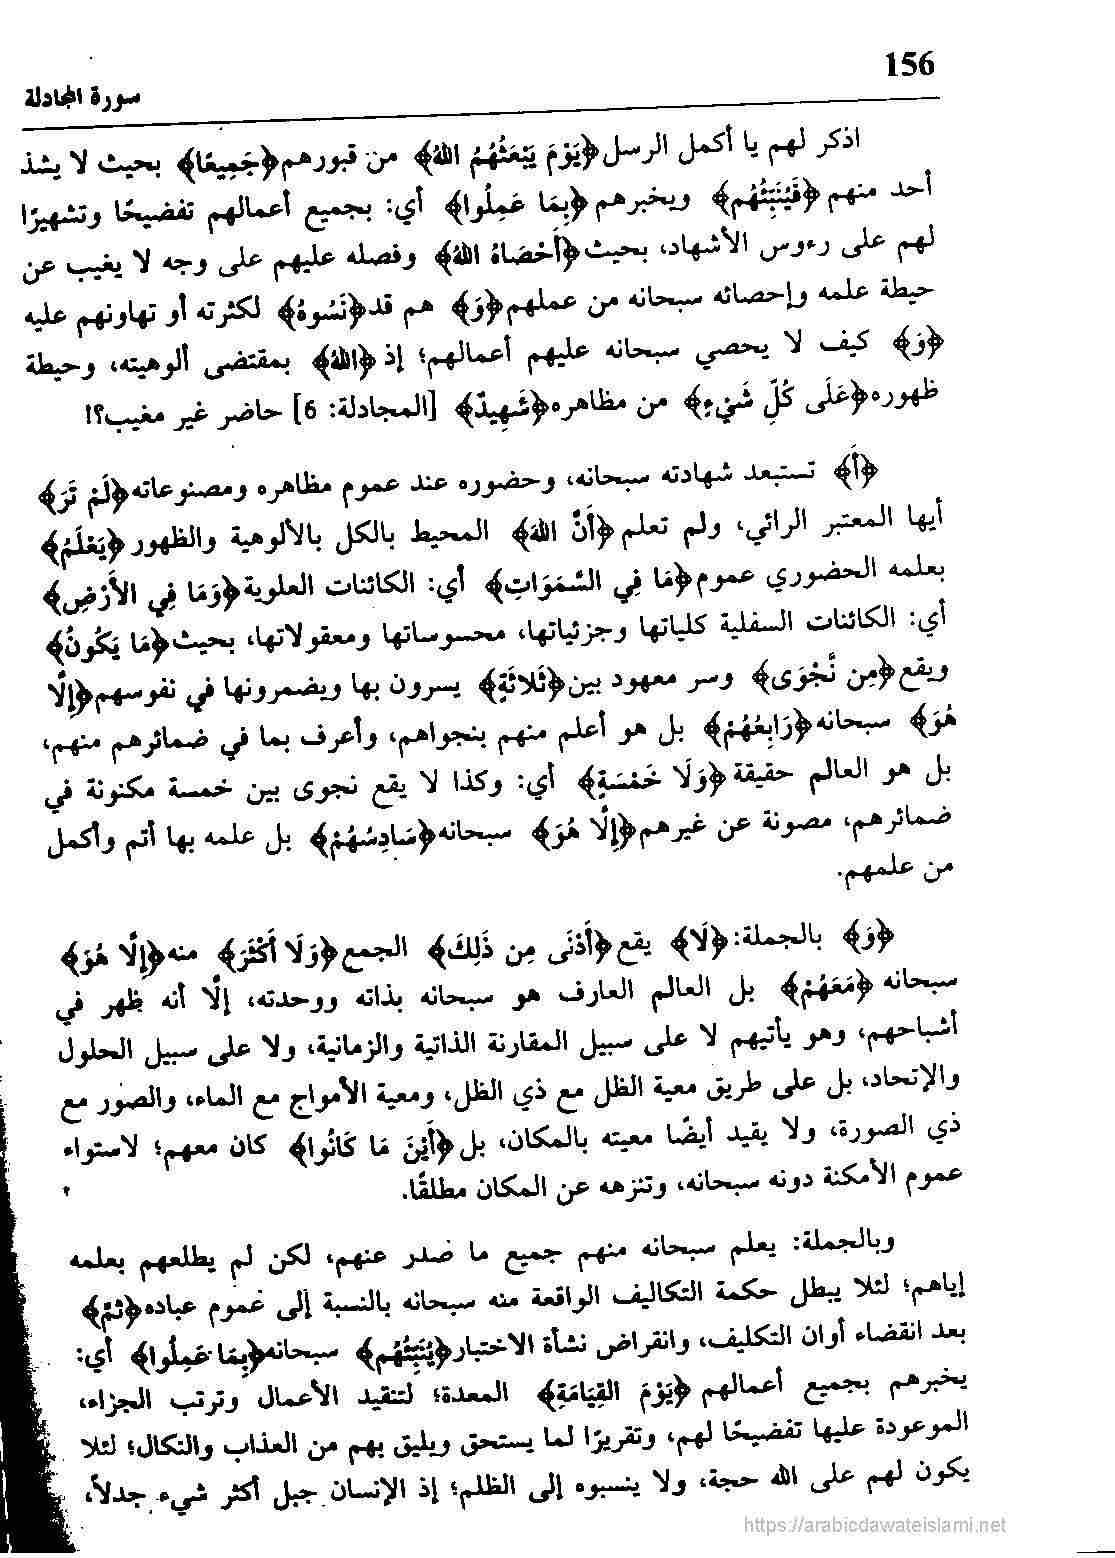 156
سورة المجادلة
اذكر لهم يا أكمل الرسل ﴿يَوْمَ يَبْعَثُهُمُ اللهُ﴾ من قبورهم ﴿جَمِيعًا﴾ بحيث لا يشذ
أحد منهم ﴿فَيُنَبِّئُهُم﴾ ويخبرهم ﴿بِمَا عَمِلُوا﴾ أي: بجميع أعمالهم تفضيحًا وتشهيرًا
لهم على رءوس الأشهاد، بحيث ﴿أَحْصَاهُ اللهُ﴾ وفصله عليهم على وجه لا يغيب عن
حيطة علمه وإحصائه سبحانه من عملهم ﴿وَ﴾ هم قد ﴿نَسُوهُ﴾ لكثرته أو تهاونهم عليه
﴿وَ﴾ كيف لا يحصي سبحانه عليهم أعمالهم؛ إذ ﴿اللهُ﴾ بمقتضى ألوهيته، وحيطة
ظهوره ﴿عَلَى كُلِّ شَيْءٍ﴾ من مظاهره ﴿شَهِيدٌ﴾ [المجادلة: 6] حاضر غير مغيب؟!
﴿أَ﴾ تستبعد شهادته سبحانه، وحضوره عند عموم مظاهره ومصنوعاته ﴿لَمْ تَرَ﴾
أيها المعتبر الرائي، ولم تعلم ﴿أَنَّ اللهَ﴾ المحيط بالكل بالألوهية والظهور ﴿يَعْلَمُ﴾
بعلمه الحضوري عموم ﴿مَا فِي السَّمَوَاتِ﴾ أي: الكائنات العلوية ﴿وَمَا فِي الأَرْضِ﴾
أي: الكائنات السفلية كلياتها وجزئياتها، محسوساتها ومعقولاتها، بحيث ﴿مَا يَكُونُ﴾
ويقع ﴿مِن نَّجْوَى﴾ وسر معهود بين ﴿ثَلاثَةٍ﴾ يسرون بها ويضمرونها في نفوسهم ﴿إِلَّا
هُوَ﴾ سبحانه ﴿رَابِعُهُمْ﴾ بل هو أعلم منهم بنجواهم، وأعرف بما في ضمائرهم منهم،
بل هو العالم حقيقة ﴿وَلَا خَمْسَةٍ﴾ أي: وكذا لا يقع نجوى بين خمسة مكنونة في
ضمائرهم، مصونة عن غيرهم ﴿إِلَّا هُوَ﴾ سبحانه ﴿سَادِسُهُمْ﴾ بل علمه بها أتم وأكمل
من علمهم.
﴿وَ﴾ بالجملة: ﴿لَا﴾ يقع ﴿أَدْنَى مِن ذَلِكَ﴾ الجمع ﴿وَلَا أَكْثَرَ﴾ منه ﴿إِلَّا هُوَ﴾
سبحانه ﴿مَعَهُمْ﴾ بل العالم العارف هو سبحانه بذاته ووحدته، إلَّا أنه ظهر في
أشباحهم، وهو يأتيهم لا على سبيل المقارنة الذاتية والزمانية، ولا على سبيل الحلول
والإتحاد، بل على طريق معية الظل مع ذي الظل، ومعية الأمواج مع الماء، والصور مع
ذي الصورة، ولا يقيد أيضًا معيته بالمكان، بل ﴿أَيْنَ مَا كَانُوا﴾ كان معهم؛ لاستواء
عموم الأمكنة دونه سبحانه، وتنزهه عن المكان مطلقًا.
وبالجملة: يعلم سبحانه منهم جميع ما صدر عنهم، لكن لم يطلعهم بعلمه
إياهم؛ لئلا يبطل حكمة التكاليف الواقعة منه سبحانه بالنسبة إلى عموم عباده ﴿ثُمَّ﴾
بعد انقضاء أوان التكليف، وانقراض نشأة الاختبار ﴿يُنَبِّئُهُم﴾ سبحانه ﴿بِمَا عَمِلُوا﴾ أي:
يخبرهم بجميع أعمالهم ﴿يَوْمَ القِيَامَةِ﴾ المعدة؛ لتنقيد الأعمال وترتب الجزاء،
الموعودة عليها تفضيحًا لهم، وتقريرًا لما يستحق ويليق بهم من العذاب والنكال؛ لئلا
يكون لهم على الله حجة، ولا ينسبوه إلى الظلم؛ إذ الإنسان جبل أكثر شيء جدلاً،
https://arabicdawateislami.net